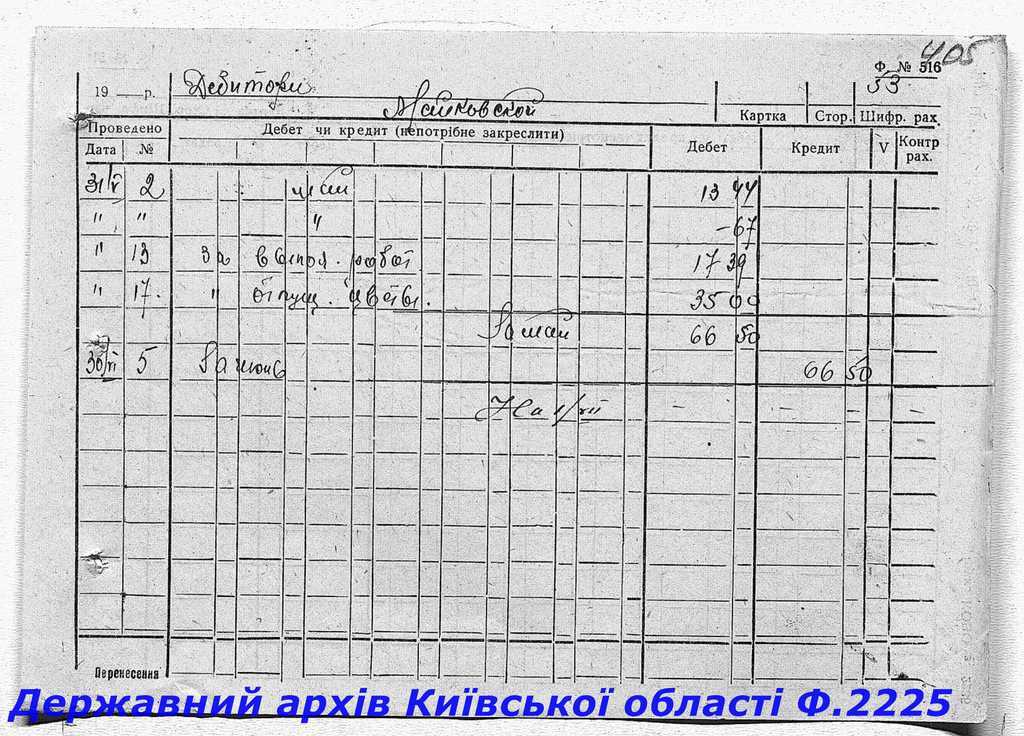 405
Ф. № 516
19 — р. Дебиторы 53
Майковской
Картка Стор. Шифр. рах.
Проведено Дебет чи кредит (непотрібне закреслити) Дебет Кредит V Контр рах.
Дата №
31/V 2 13 44
" " " -67
" 13 За выпол. работ 17 39
" 17. " отпущ. цветы. 35 00
За май 66 50
30/VI 5 За июнь 66 50
На 1/VII - - - - -
Перенесення
Державний архів Київської області Ф.2225